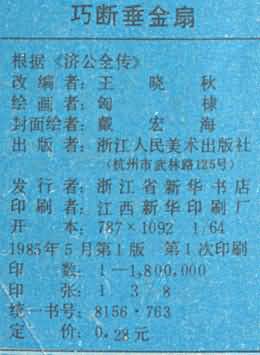 巧断垂金扇
根据《济公全传》
改编者：王晓秋
绘画者：匈棣
封面绘者：戴宏海
出版者：浙江人民美术出版社
（杭州市武林路125号）
发行者：浙江省新华书店
印刷者：江西新华印刷厂
开本：787×1092 1/64
1985年5月第1版 第1次印刷
印数：1—1,800,000
印张：1 3 8
统一书号：8156·763
定价：0.28元